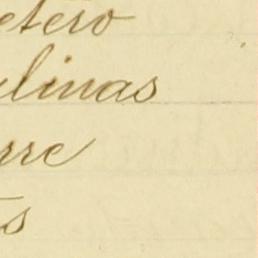 etero
linas
rre
s